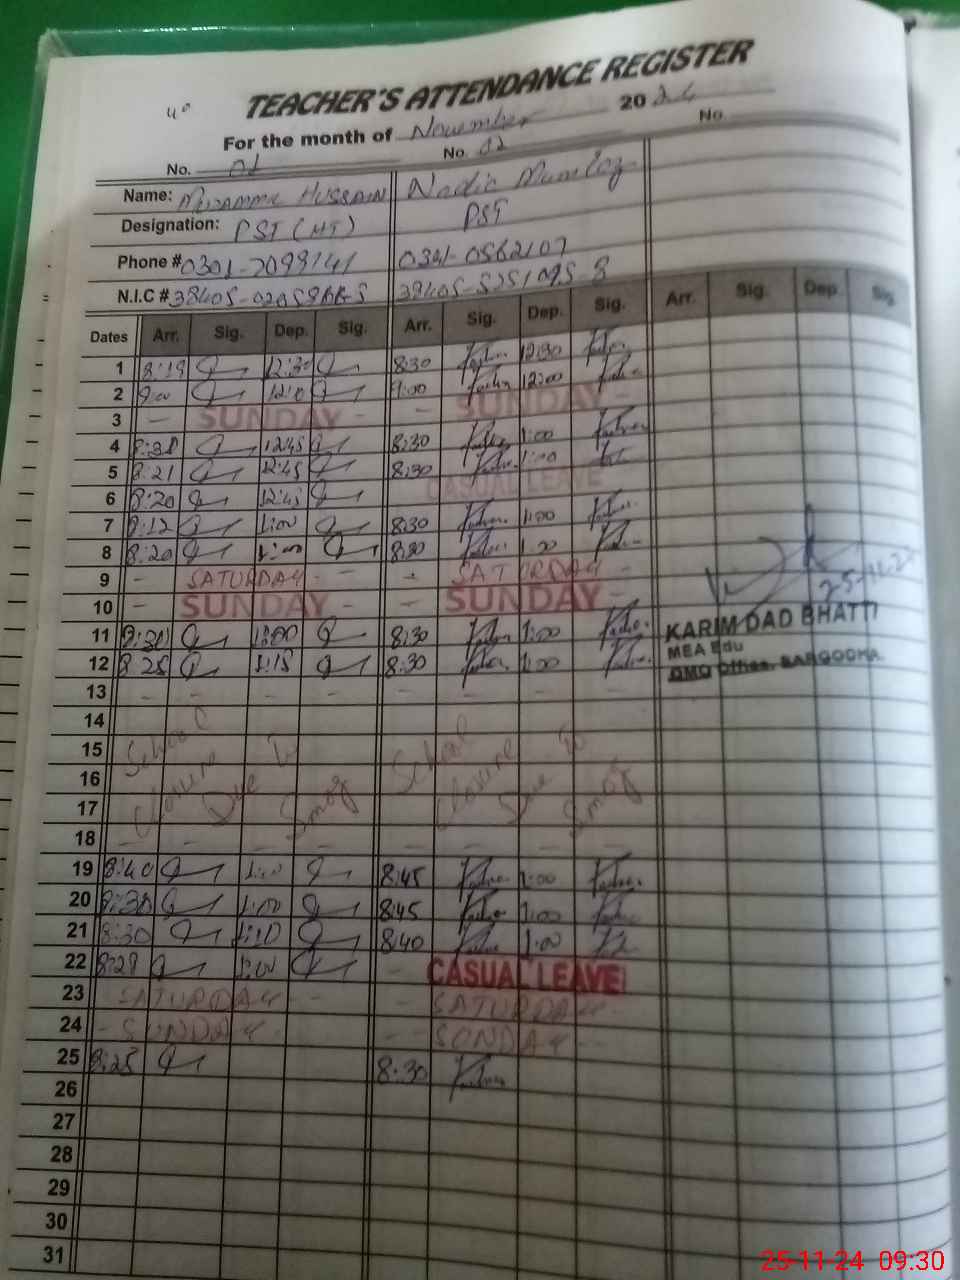 TEACHER'S ATTENDANCE REGISTER
For the month of November 2024
No. 01 No. 02 No.
Name: Muzammil HUSSAIN Nadia Mumtaz
Designation: PST (HT) PST
Phone # 0301-7099141 0341-0562107
N.I.C # 38405-
Dates Arr. Sig. Dep. Sig. Arr. Sig. Dep. Sig. Arr. Sig. Dep. Sig.
1 8:19 12:30 8:30 12:30
2 9:00 12:0 9:00 12:00
3 - SUNDAY - - SUNDAY -
4 8:38 12:45 8:30 1:00
5 8:21 12:45 8:30 1:00
6 8:20 12:45 CASUAL LEAVE
7 8:12 1:00 8:30 1:00
8 8:20 1:00 8:30 1:00
9 - SATURDAY - - SATURDAY
10 - SUNDAY - - SUNDAY
11 8:30 1:00 8:30 1:00
KARIM DAD BHATTI
MEA Edu
DMO Office, SARGODHA
12 8:25 1:15 8:30 1:00
13 - - - - - - - -
14
15 School School
16 closure closure
17 Due To Due To
18 Smog Smog
19 8:40 1:00 8:45 1:00
20 8:30 1:00 8:45 1:00
21 8:30 1:10 8:40 1:00
22 8:29 1:00 - CASUAL LEAVE
23 SATURDAY - - SATURDAY -
24 - SUNDAY - - - SONDAY - -
25 8:25 8:30
26
27
28
29
30
31
25-11-24 09:30